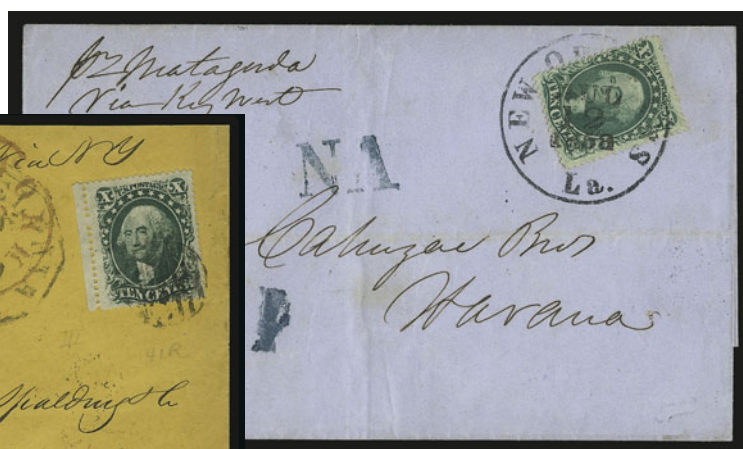 pr Matagorda
Via Key West
NEW ORLEANS
La.
NA
Cahuzac Bros
Havana
Via NY
U.S. POSTAGE
X X
TEN CENTS
II
41R
Spalding &